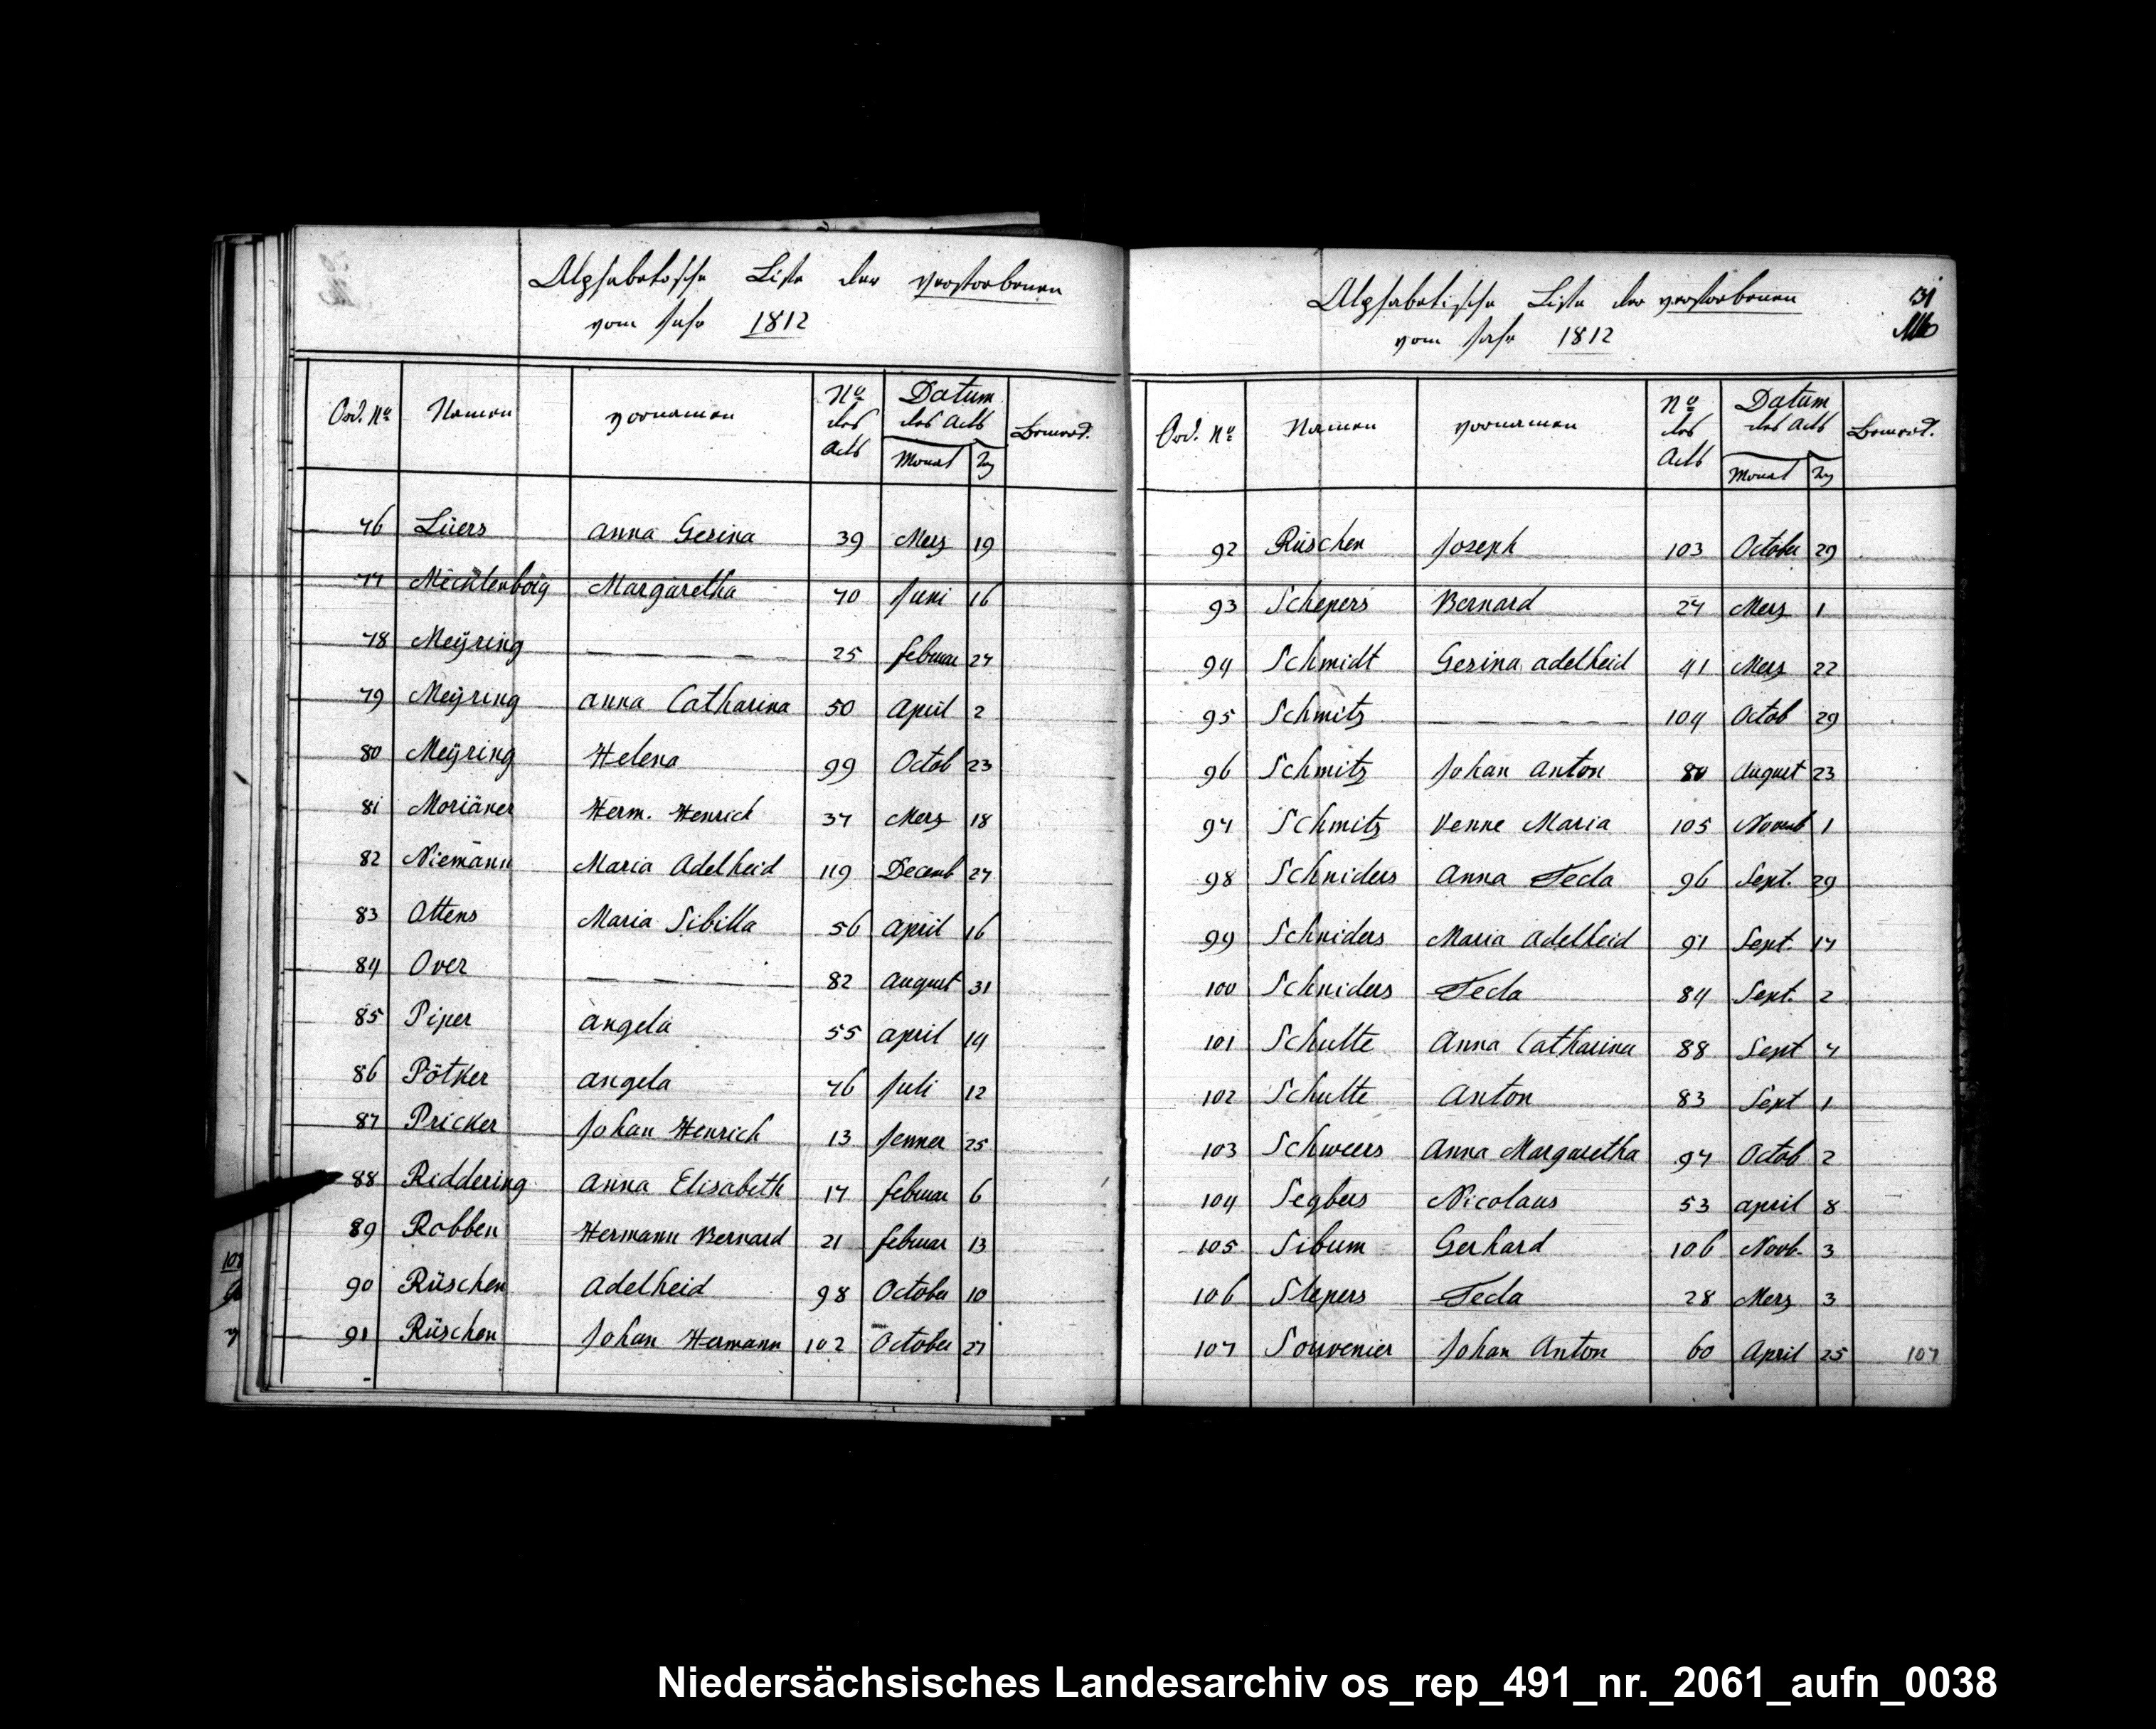 Alphabetische Liste der verstorbenen
vom Jahr 1812
Ord. No Namen Vornamen No des Acts Datum des Acts Monat Tag Bemerk.
76 Lüers Anna Gesina 39 Merz 19
77 Mechtenborg Margaretha 70 Juni 16
78 Meÿring — — — — 25 februar 27
79 Meÿring Anna Catharina 50 April 2
80 Meÿring Helena 99 Octob 23
81 Moriäner Herm. Henrich 37 Merz 18
82 Niemann Maria Adelheid 119 Decemb 27
83 Ottens Maria Sibilla 56 April 16
84 Over — — — — 82 August 31
85 Piper Angela 55 April 14
86 Pötker Angela 76 Juli 12
87 Pricker Johan Henrich 13 Jenner 25
88 Riddering Anna Elisabeth 17 februar 6
89 Robben Hermann Bernard 21 februar 13
90 Rüschen Adelheid 98 October 10
91 Rüschen Johan Hermann 102 October 27
Alphabetische Liste der verstorbenen
vom Jahr 1812
31
Ord. No Namen Vornamen No des Acts Datum des Acts Monat Tag Bemerk.
92 Rüschen Joseph 103 October 29
93 Schepers Bernard 27 Merz 1
94 Schmidt Gesina Adelheid 41 Merz 22
95 Schmitz — — — — — 104 Octob 29
96 Schmitz Johan Anton 80 August 23
97 Schmitz Venne Maria 105 Novemb 1
98 Schniders Anna Tecla 96 Sept. 29
99 Schniders Maria Adelheid 91 Sept. 17
100 Schniders Tecla 84 Sept. 2
101 Schulte Anna Catharina 88 Sept 7
102 Schulte Anton 83 Sept 1
103 Schweers Anna Margaretha 97 Octob 2
104 Segbers Nicolaus 53 April 8
105 Sibum Gerhard 106 Novb. 3
106 Slepers Tecla 28 Merz 3
107 Souvenier Johan Anton 60 April 25 107
Niedersächsisches Landesarchiv os_rep_491_nr._2061_aufn_0038